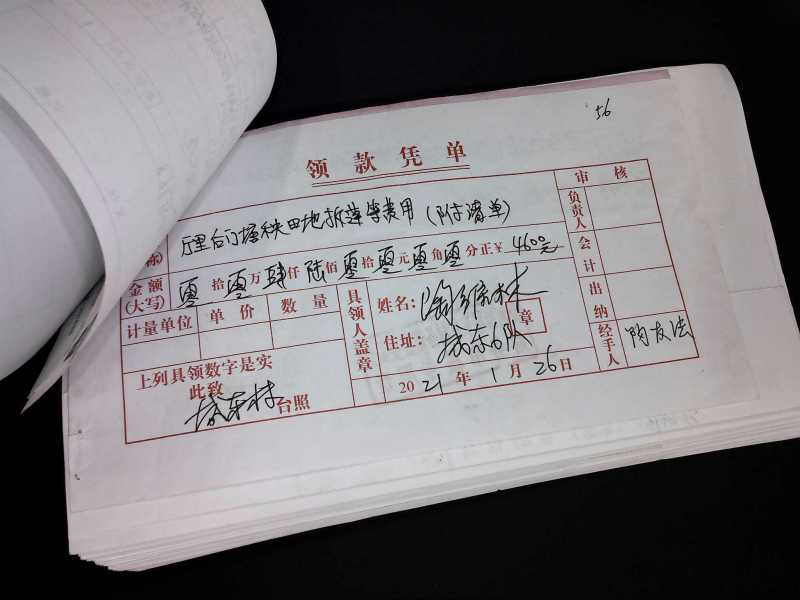 56
领款凭单
称 后门塘秧田地拆莲等费用（附清单）
金额(大写) 零拾零万肆仟陆佰零拾零元零角零分正￥4600元
计量单位 单价 数量
上列具领数字是实
此致
城东村台照
具领人盖章
姓名：
住址：城东6队
章
2021年1月26日
审核
负责人
会计
出纳
经手人 陶友法